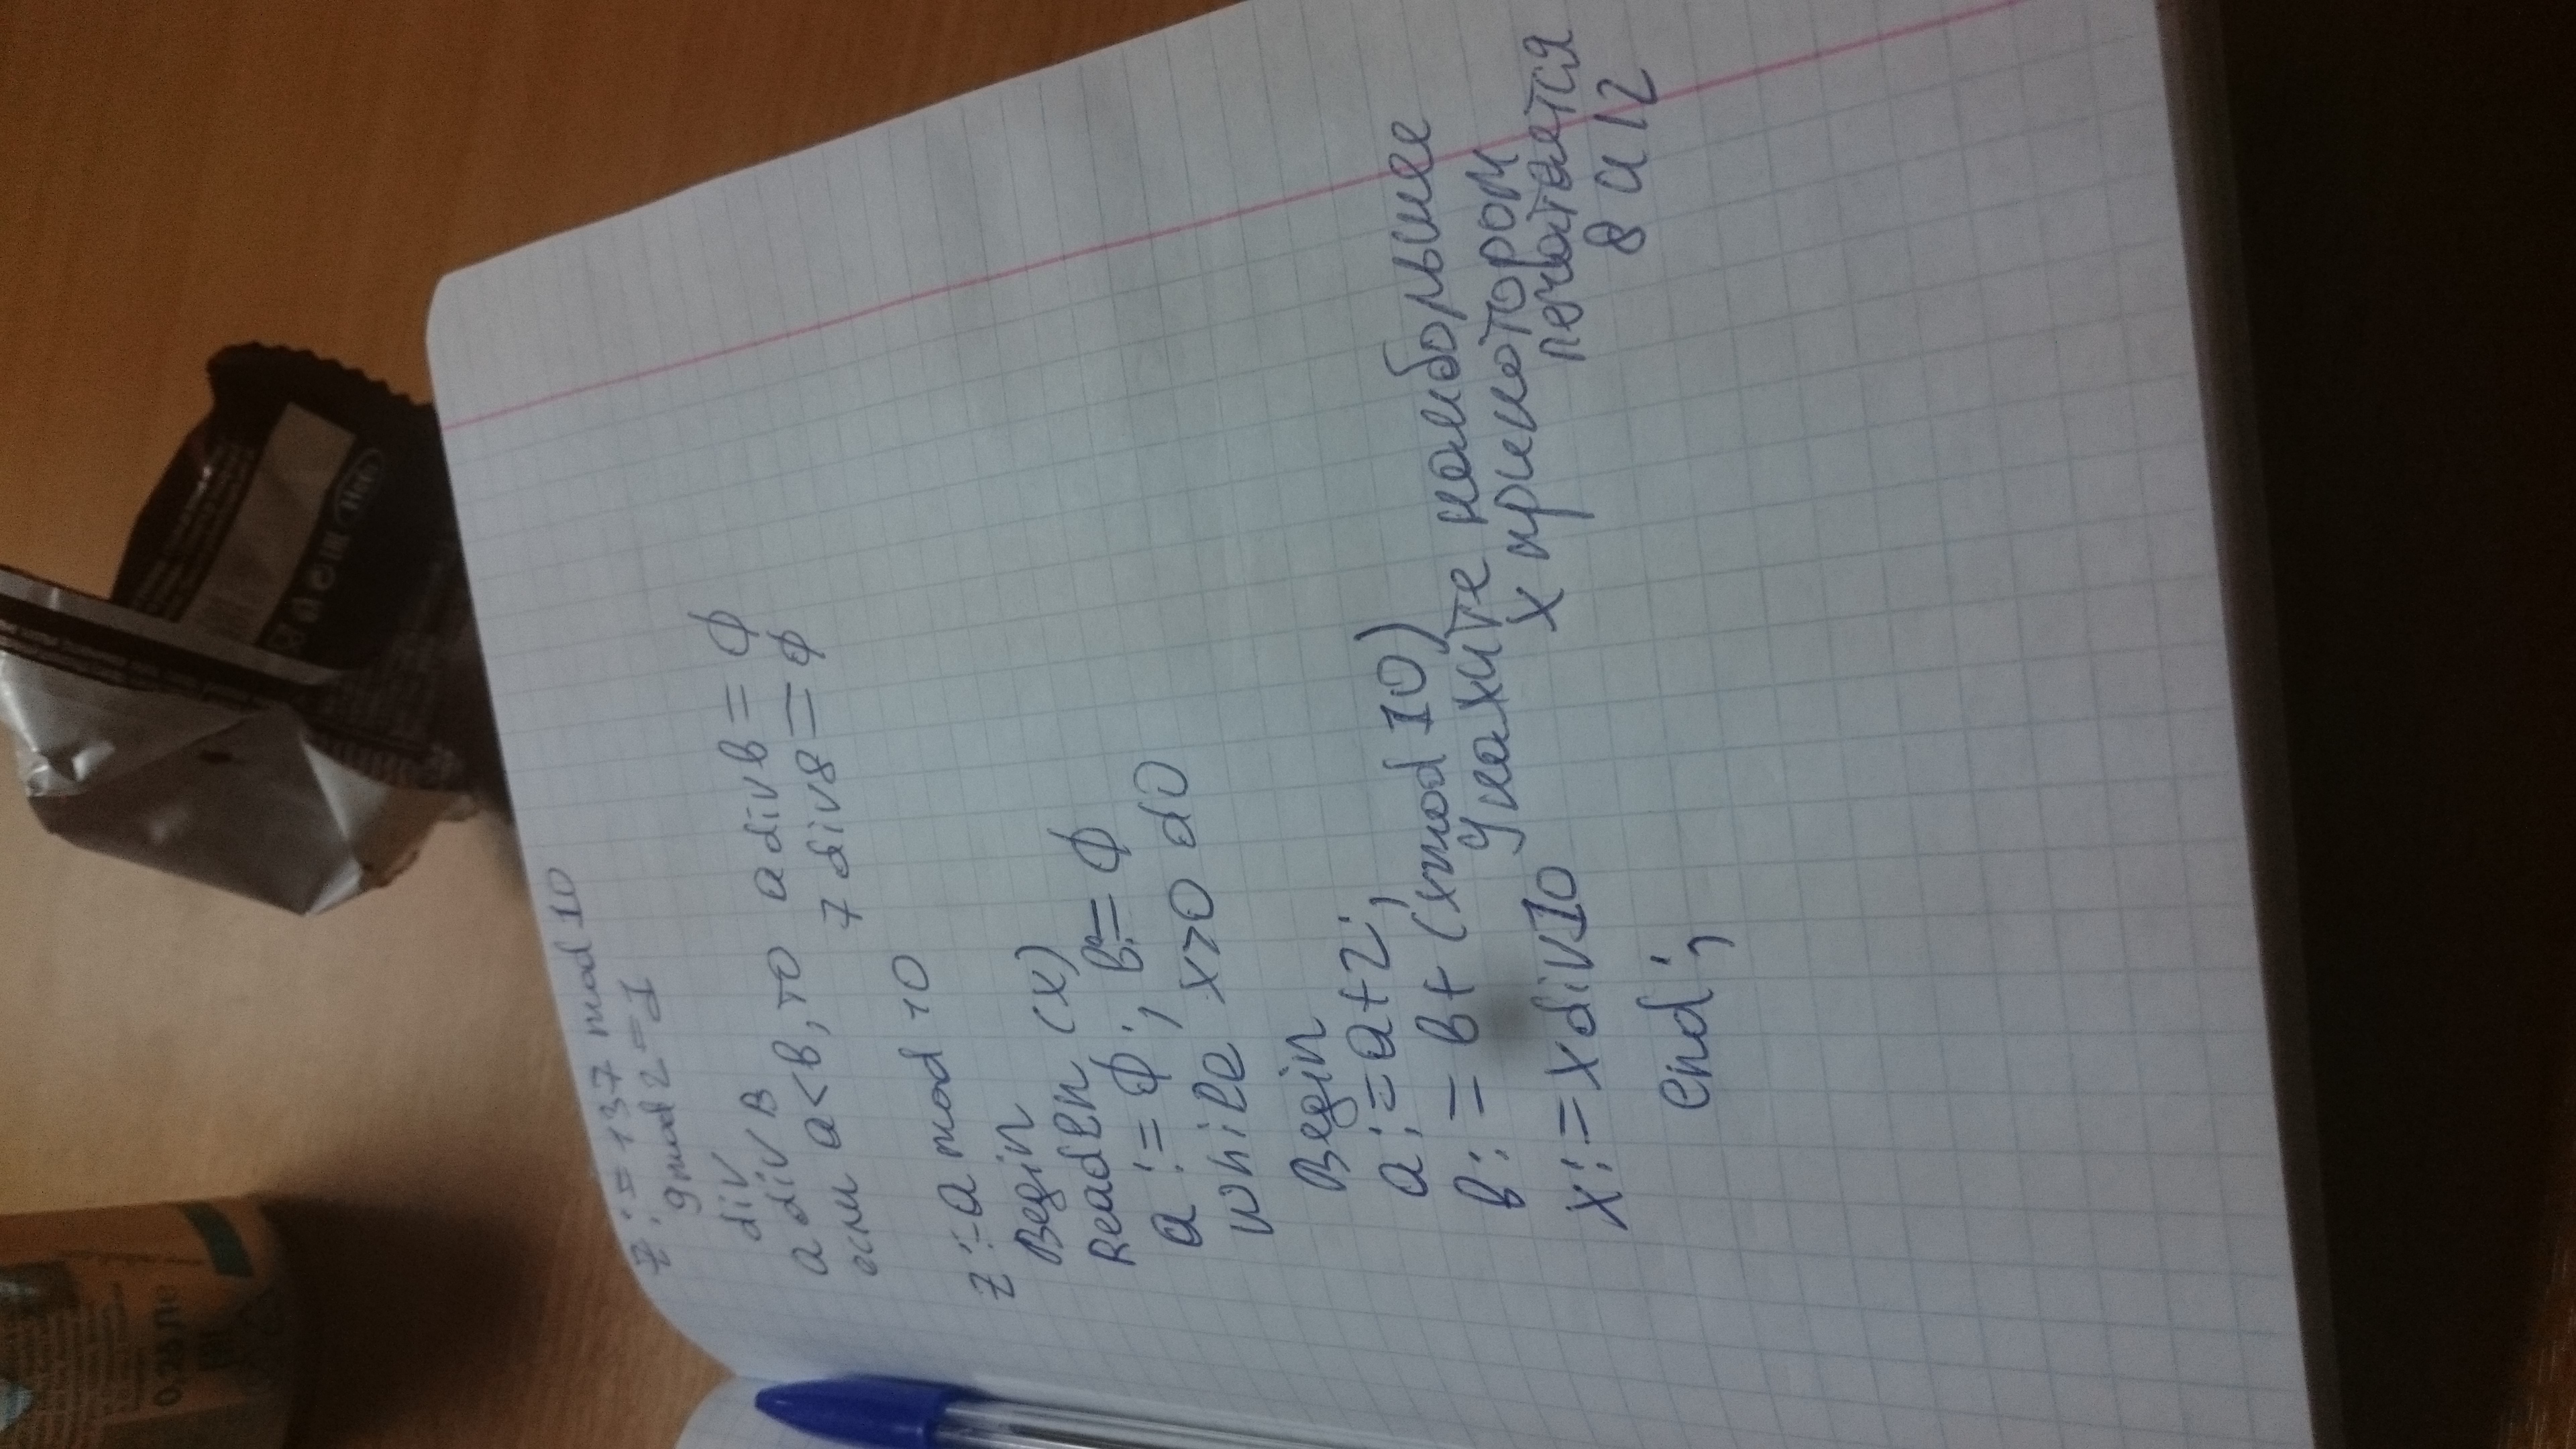 z := 137 mod 10
9 mod 2 = 1
div
a div B
если a < B, то a div b = 0
7 div 8 = 0
z := a mod 10
Begin
Readln (x)
a := 0; B := 0
while x>0 do
Begin
a := a+2;
B := B + (x mod 10)
x := x div 10
end;
Укажите наибольшее
x при котором
печатается
8 и 12
0,25 л